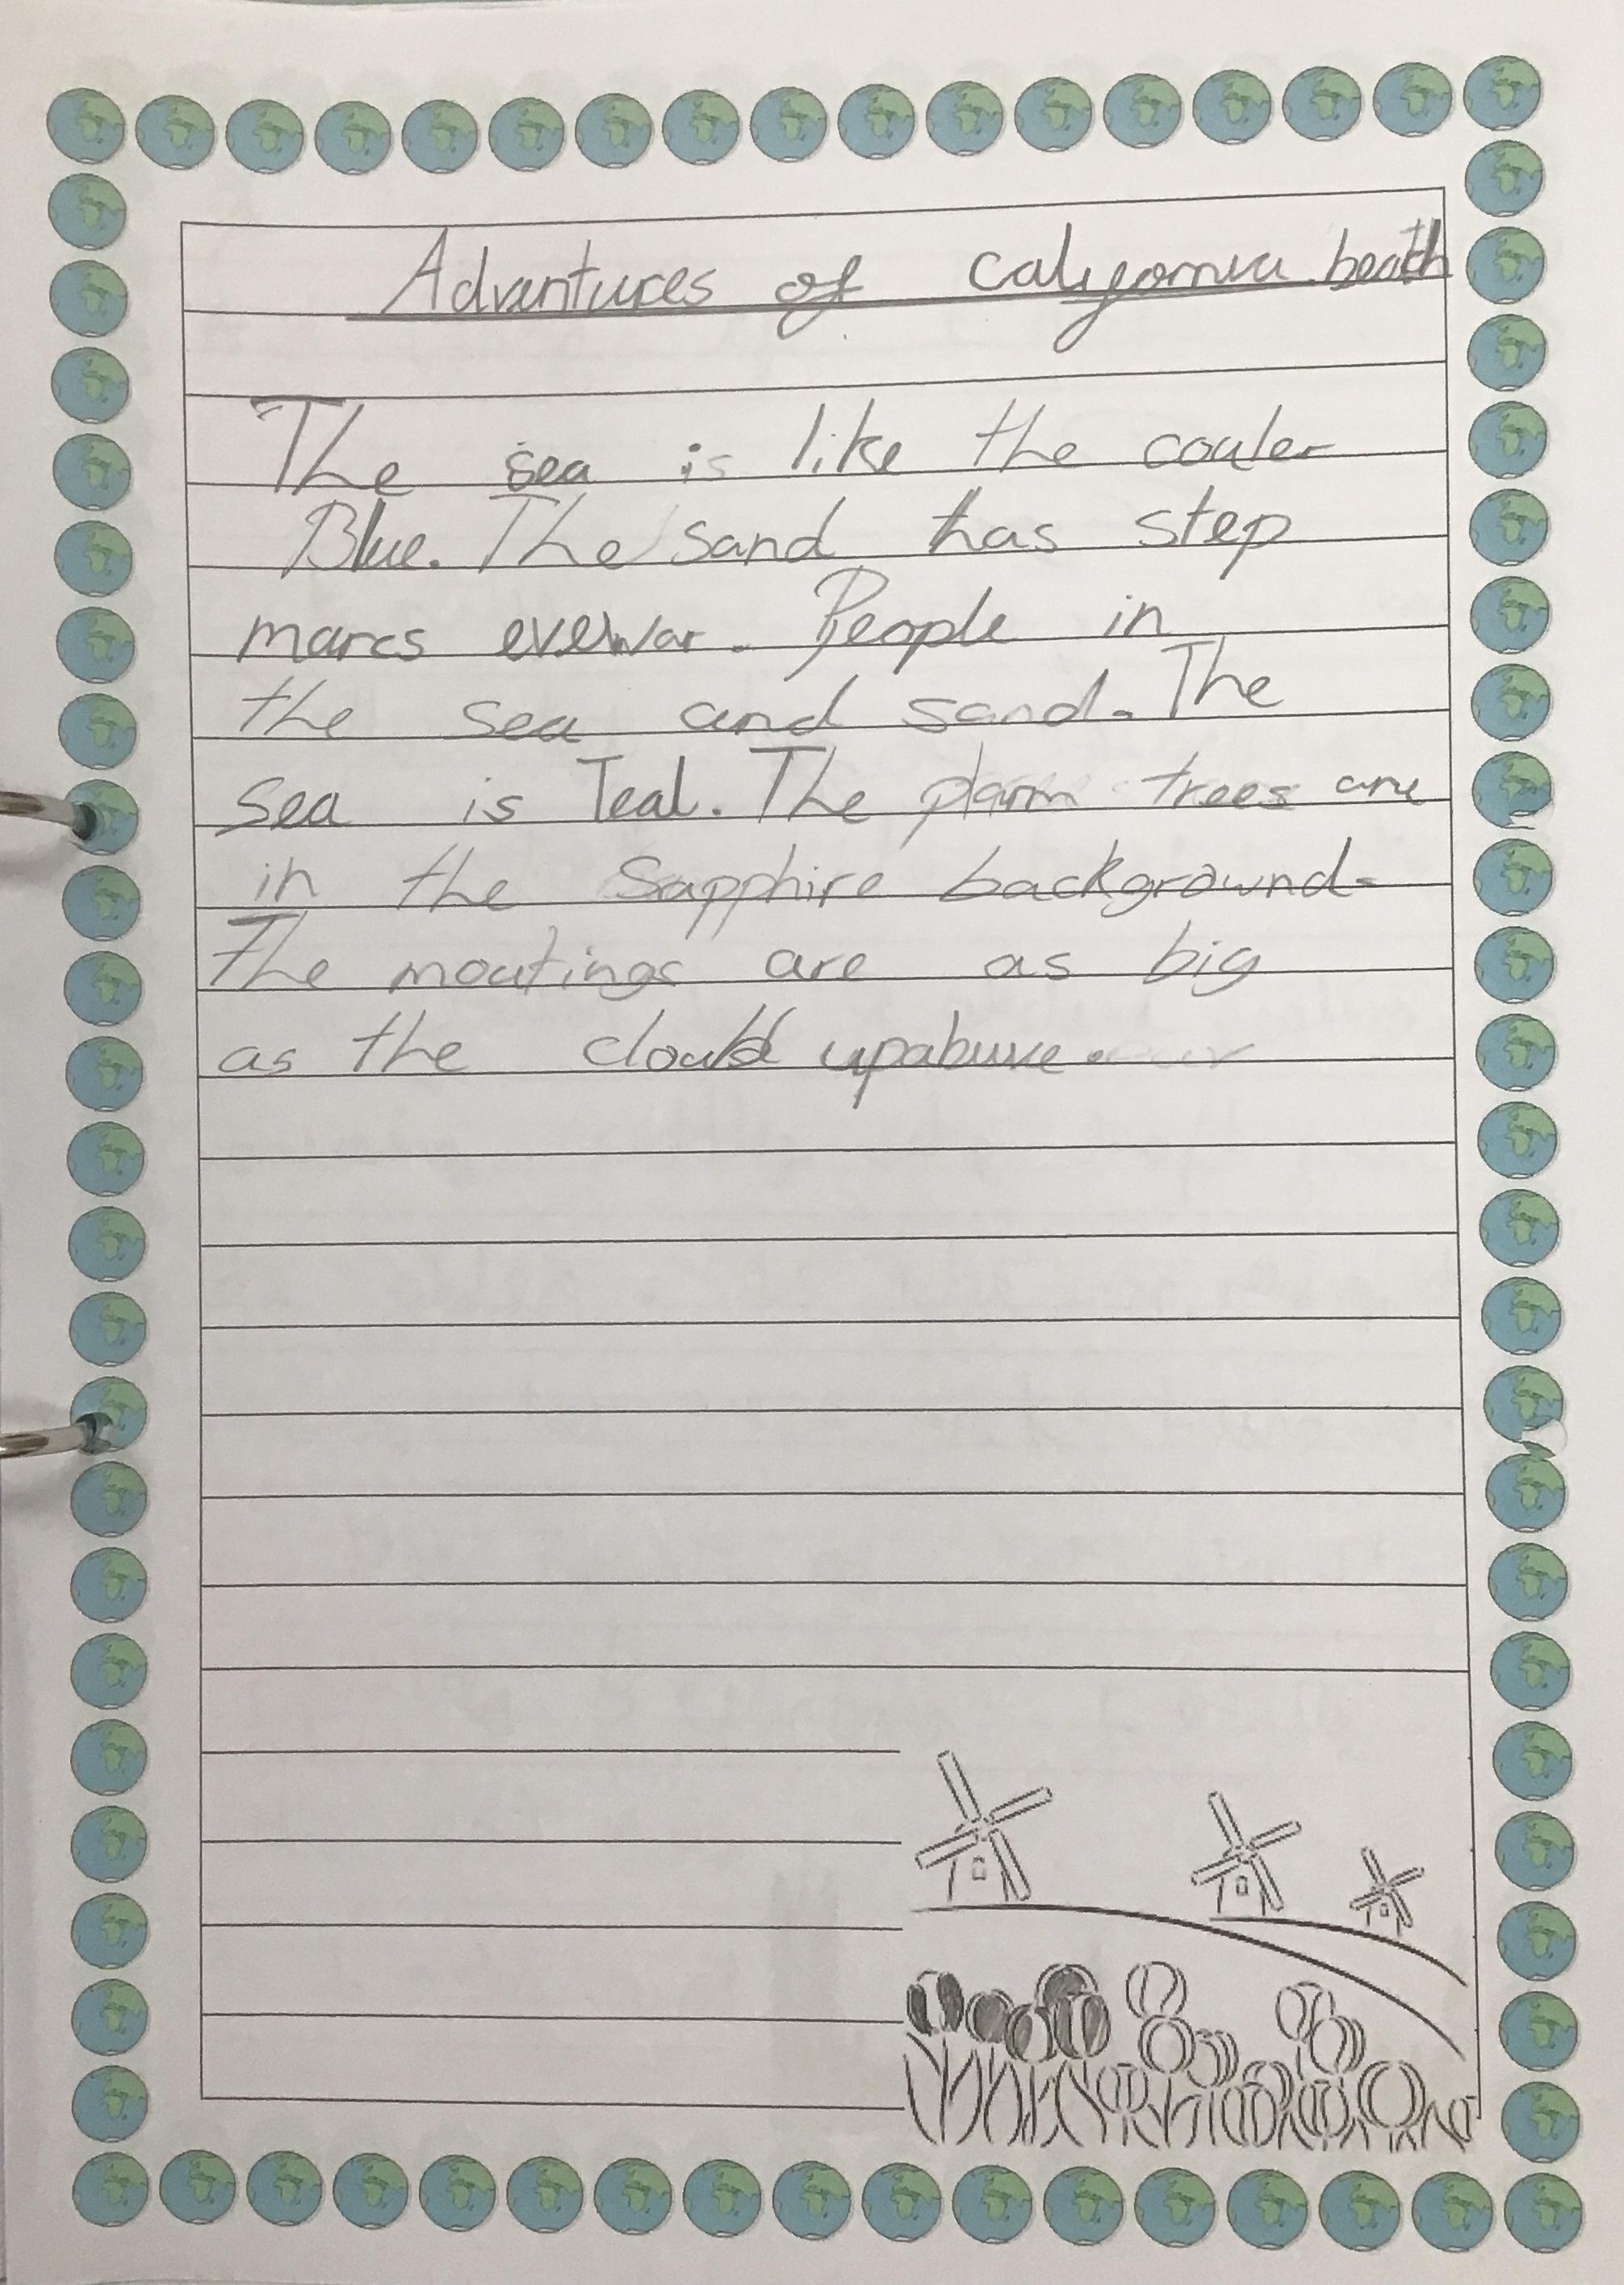 Adventures of calyornia beath
The sea is like the couler
Blue. The sand has step
marcs evewar. People in
the sea and sand. The
sea is Teal. The plarm trees are
in the Sapphire background.
The moutings are as big
as the upabuve.